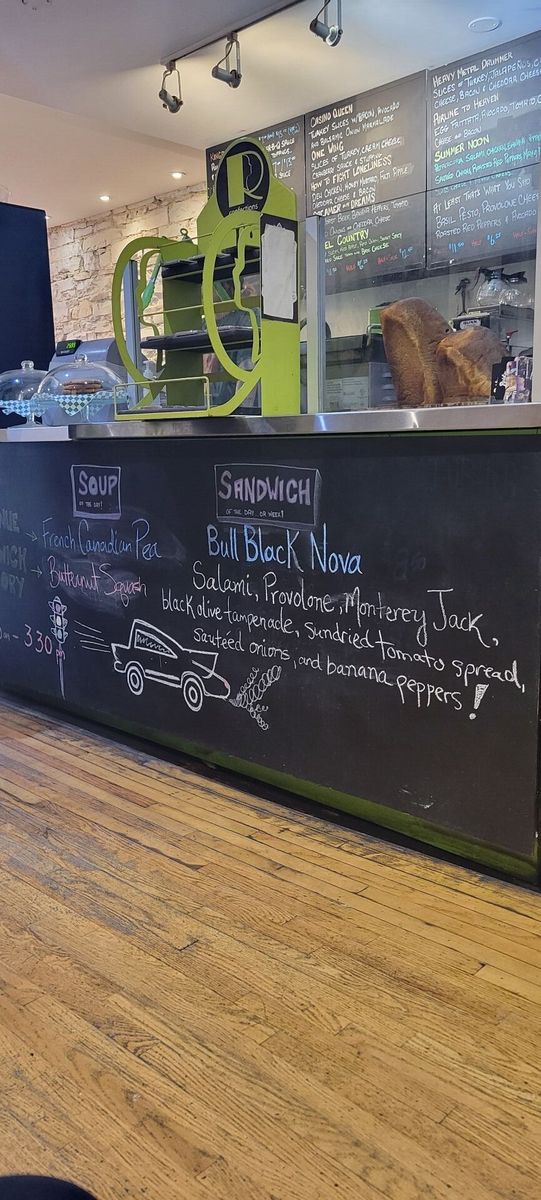 CASINO QUEEN
TURKEY SLICES W/ BACON, AVOCADO
AND BALSAMIC ONION MARMALADE
ONE WING
SLICES OF TURKEY, CREAM CHEESE,
CRANBERRY SAUCE & STUFFING
HOW TO FIGHT LONELINESS
DELI CHICKEN, HONEY MUSTARD, FRESH APPLE
CHEDDAR CHEESE & BACON
DREAMER IN MY DREAMS
ROAST BEEF, BANANA PEPPERS, TOMATO
ONIONS AND CHEDDAR CHEESE
EL COUNTRY
HEAVY METAL DRUMMER
SLICES OF TURKEY, JALAPEÑOS,
CHEESE, BACON & CHEDDAR CHEESE
AIRLINE TO HEAVEN
EGG FRITTATA, AVOCADO, TOMATO,
CHEESE AND BACON
SUMMER NOON
AT LEAST THAT'S WHAT YOU SAID
BASIL PESTO, PROVOLONE CHEESE
ROASTED RED PEPPERS & AVOCADO
R
SOUP
OF THE DAY!
French Canadian Pea
Butternut Squash
- 3:30 pm
SANDWICH
OF THE DAY... OR WEEK!
Bull Black Nova
Salami, Provolone, Monterey Jack,
black olive tampenade, sundried tomato spread,
sautéed onions, and banana peppers!